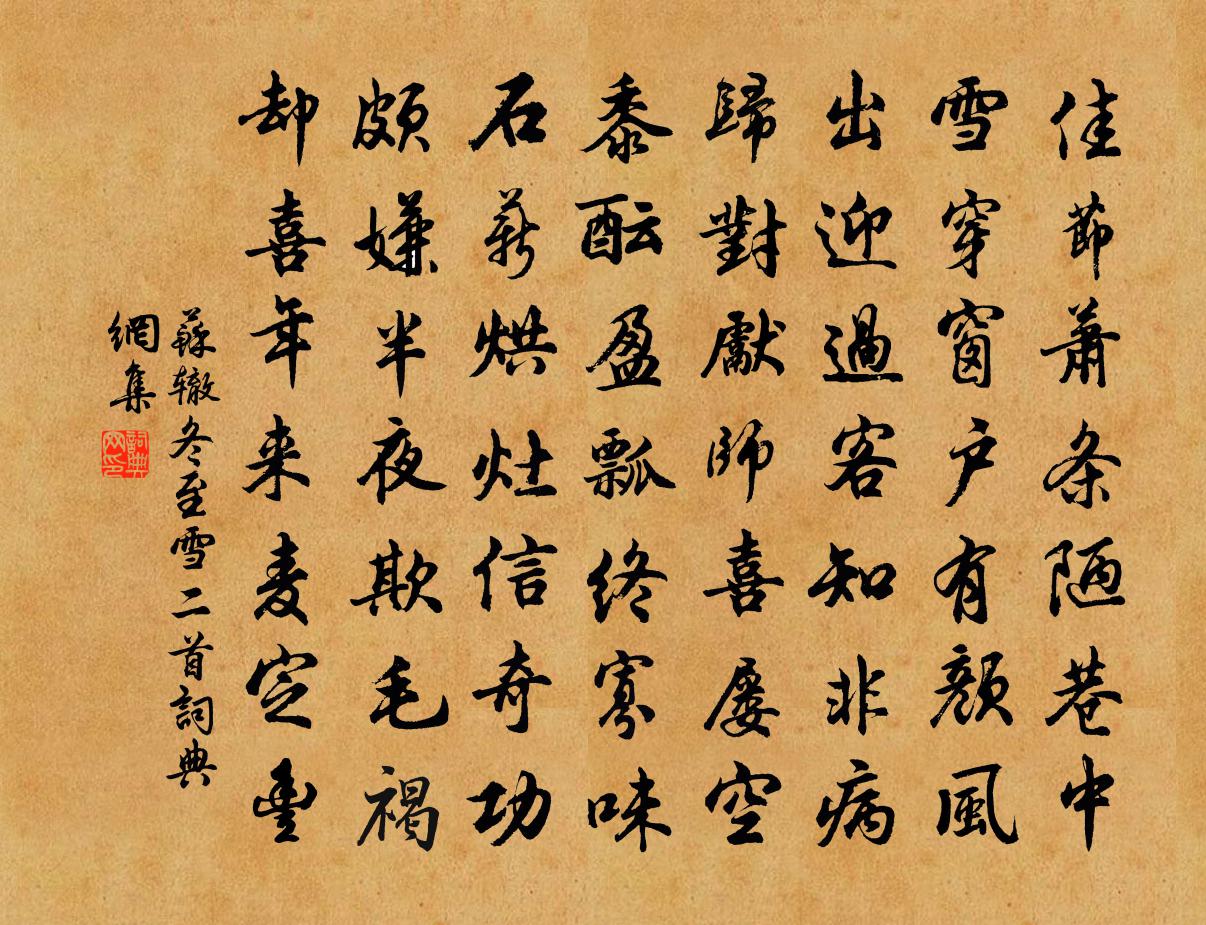 佳節蕭条陋巷中
雪穿窗户有顔風
出迎過客知非病
歸對獻師喜屡空
黍酝盈瓢終寡味
石薪烘灶信奇功
頗嫌半夜欺毛褐
却喜年来麦定豊
蘇辙冬至雪二首詞典
網集
詞典
网印